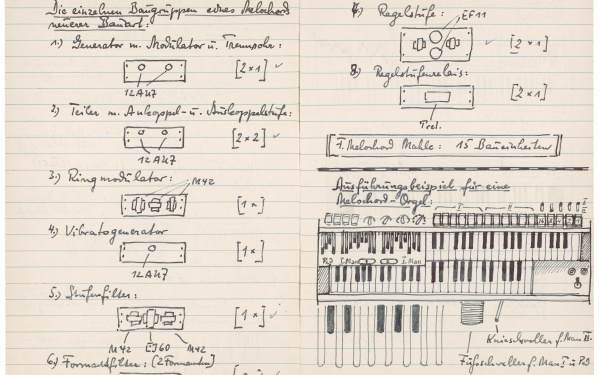 Die einzelnen Baugruppen eines Melochord
neuerer Bauart:
1.) Generator m. Modulator u. Trennröhr.:
[2×1] ✓
12AU7
2.) Teiler m. Ankoppel- u. Auskoppelstufe:
[2×2] ✓
12AU7
3.) Ringmodulator:
M42
[1×]
4.) Vibratogenerator
[1×]
12AU7
5.) Stufenfilter:
[1×] ✓
M42 EJ60 M42
6.) Formantfilter: (2 Formanten)
7.) Regelstufe:
EF11
✓ [2×1]
8.) Regelstufenrelais:
[2×1]
Trel.
F. Melochord Mahle: 15 Baueinheiten
Ausführungsbeispiel für eine
Melochord-Orgel:
I II
I
II
Pd I. Man I. Man
Knieschweller f. Man II.
Fußschweller f. Man I u. Pd